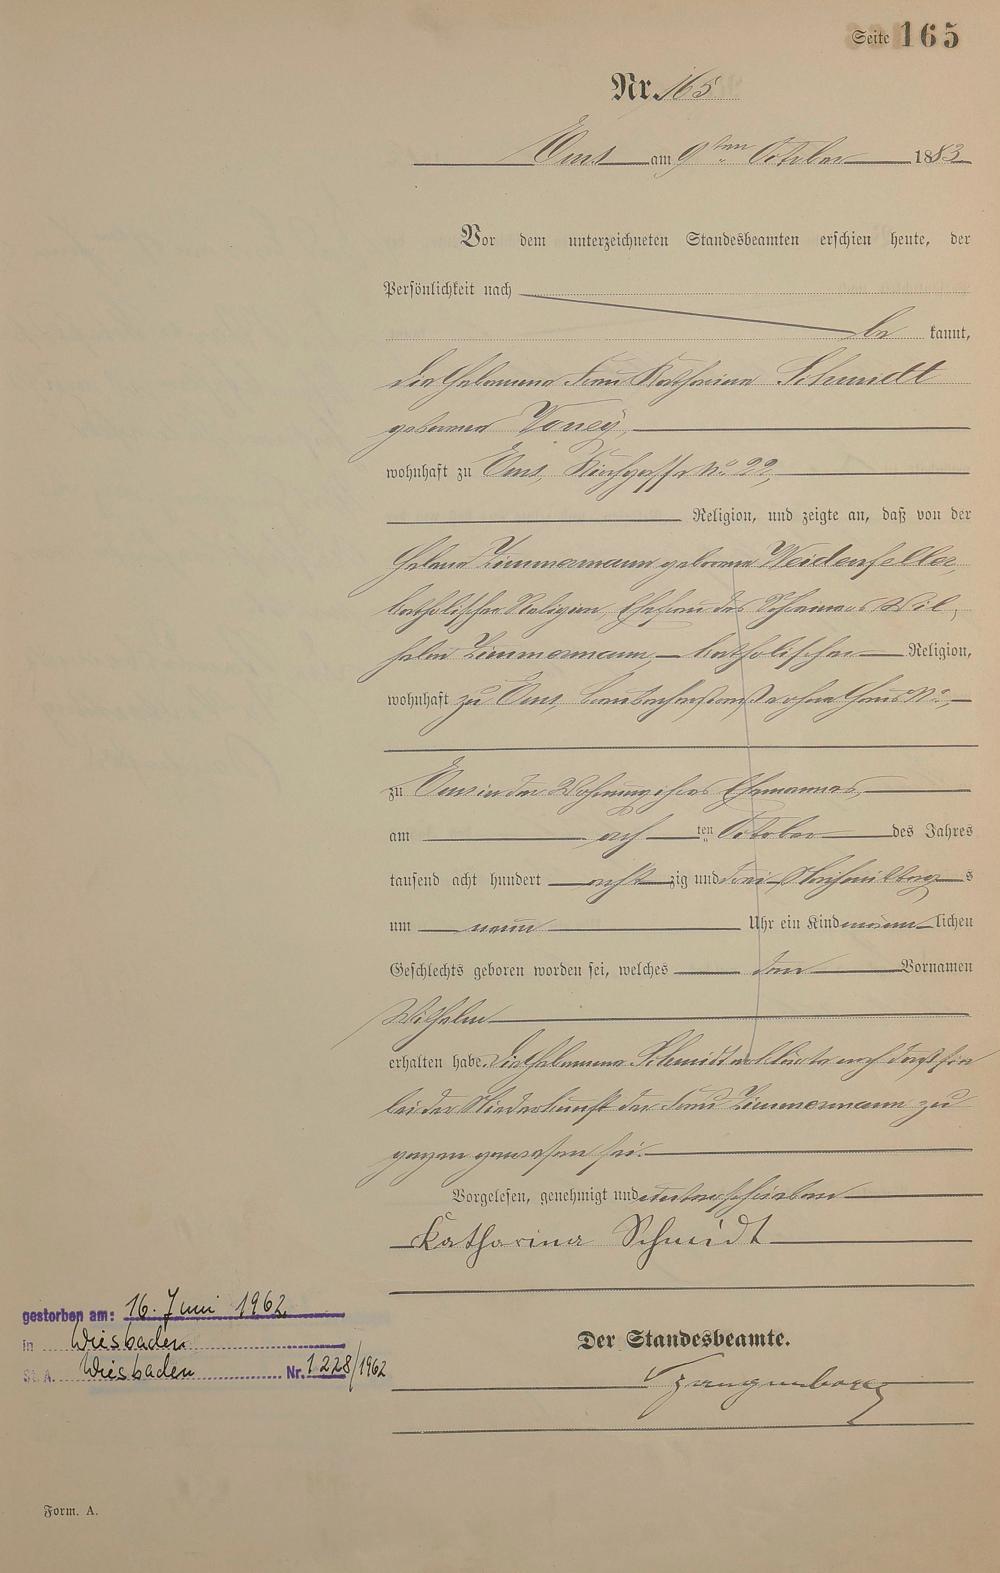 Seite 165
Nr. 165
Ems am 9ten October 1883
Vor dem unterzeichneten Standesbeamten erschien heute, der
Persönlichkeit nach
be kannt,
die Hebamme Frau Katharina Schmidt
geborene
wohnhaft zu Ems, Kirchgasse No 22,
Religion, und zeigte an, daß von der
Helene Zimmermann geborene Weidenfeller,
katholischer Religion, Ehefrau des Schreiners Wil-
helm Zimmermann, katholischer Religion,
wohnhaft zu Ems, ohne Haus No,
zu Ems in der Wohnung ihres Ehemannes,
am ach ten October des Jahres
tausend acht hundert acht zig und drei s
um neun Uhr ein Kind männ lichen
Geschlechts geboren worden sei, welches den Vornamen
Wilhelm
erhalten habe. Die Hebamme Schmidt erklärte noch daß sie
bei der Niederkunft der Frau Zimmermann zu
gegen gewesen sei.
Vorgelesen, genehmigt und unterschrieben
Katharina Schmidt
gestorben am: 16. Juni 1962
in Wiesbaden
St. A. Wiesbaden Nr. 1228/1962
Der Standesbeamte.
Form. A.